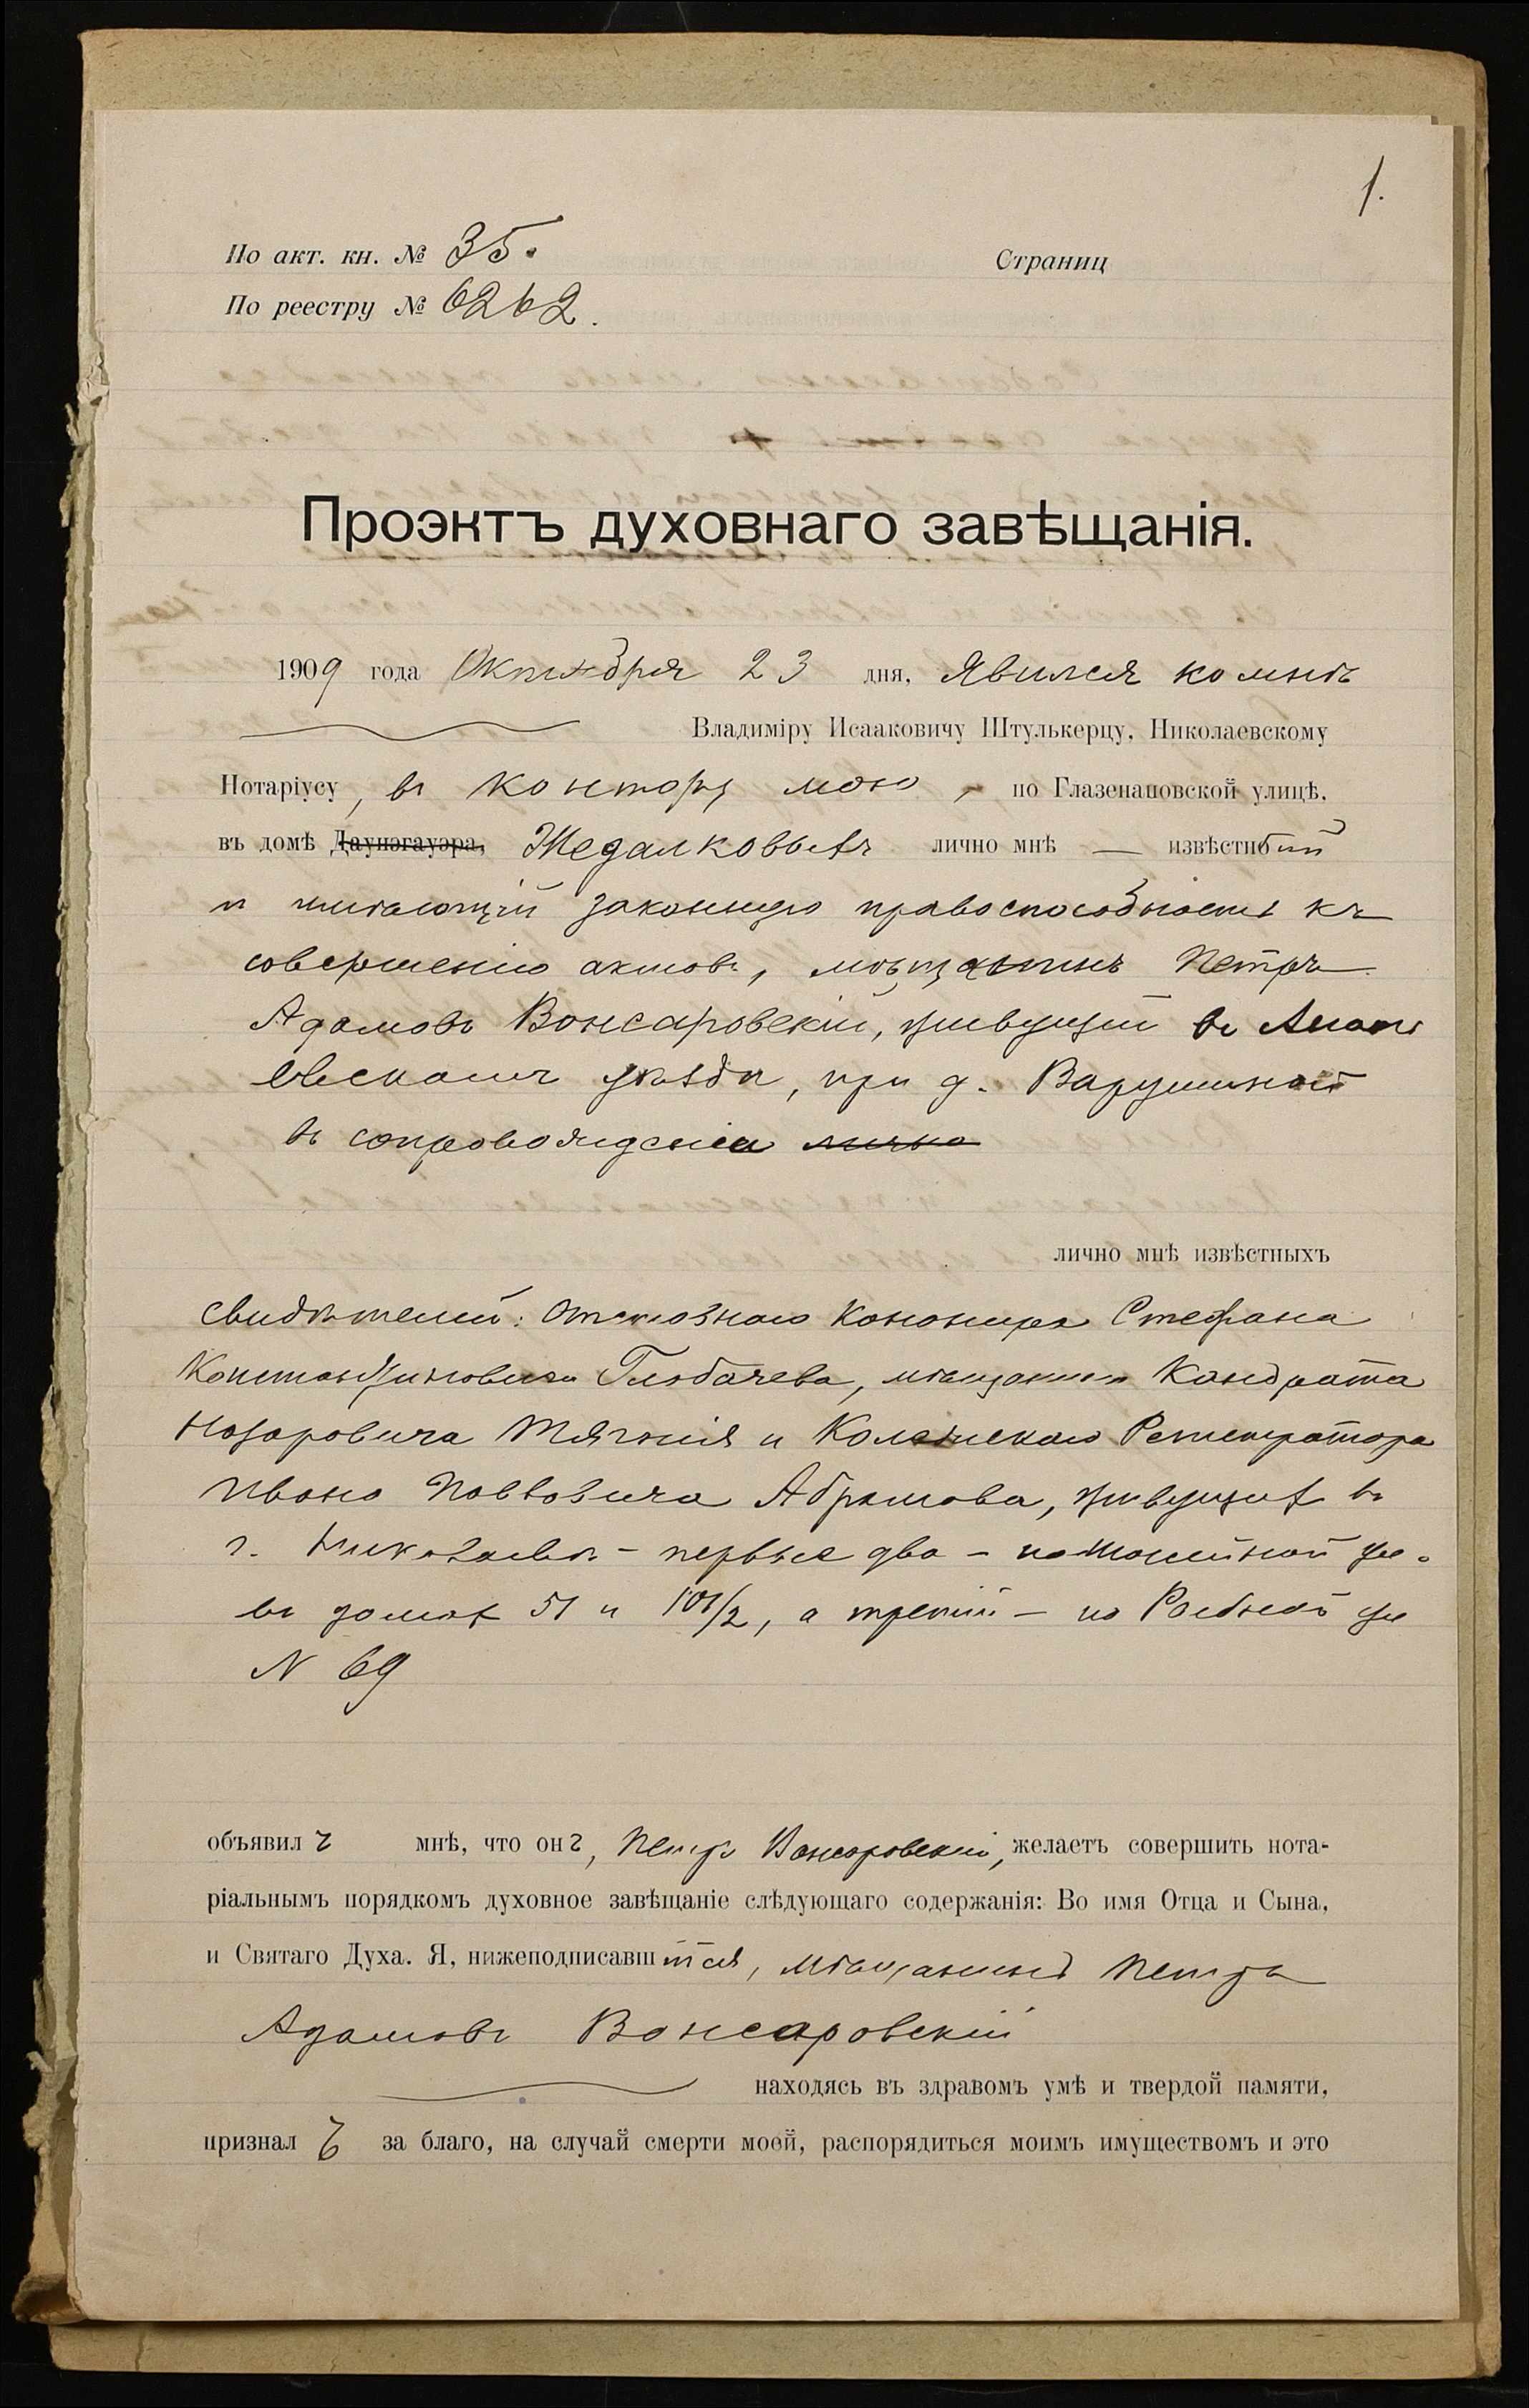 1.
По акт. кн. № 35.
Страниц
По реестру № 6262.
Проэктъ духовнаго завѣщанія.
1909 года Октября 23 дня, явился ко мнѣ
Владиміру Исааковичу Штулькерцу, Николаевскому
Нотаріусу, въ контору мою, по Глазенаповской улицѣ,
въ домѣ Даунэгауэра, лично мнѣ — извѣстный
и имѣющій законную правоспособность къ
совершенію актовъ, мѣщанинъ Петръ
Адамовъ Вонсаровскій, живущій въ Анань
евскомъ уѣздѣ, при д.
въ сопровожденіи лично
лично мнѣ извѣстныхъ
свидѣтелей: отставного Канонира Стефана
Константиновича Глобачева, мѣщанина Кондрата
Назаровича и Коллежскаго Регистратора
Ивана Абрамова, живущихъ въ
г. Николаевѣ – первые два – по ул.
въ домахъ 51 и 101/2, а третій – по ул
N 69
объявилъ мнѣ, что онъ, Петръ Вонсаровскій, желаетъ совершить нота-
ріальнымъ порядкомъ духовное завѣщаніе слѣдующаго содержанія: Во имя Отца и Сына,
и Святаго Духа. Я, нижеподписавшійся, мѣщанинъ Петръ
Адамовъ Вонсаровскій
находясь въ здравомъ умѣ и твердой памяти,
призналъ за благо, на случай смерти моей, распорядиться моимъ имуществомъ и это